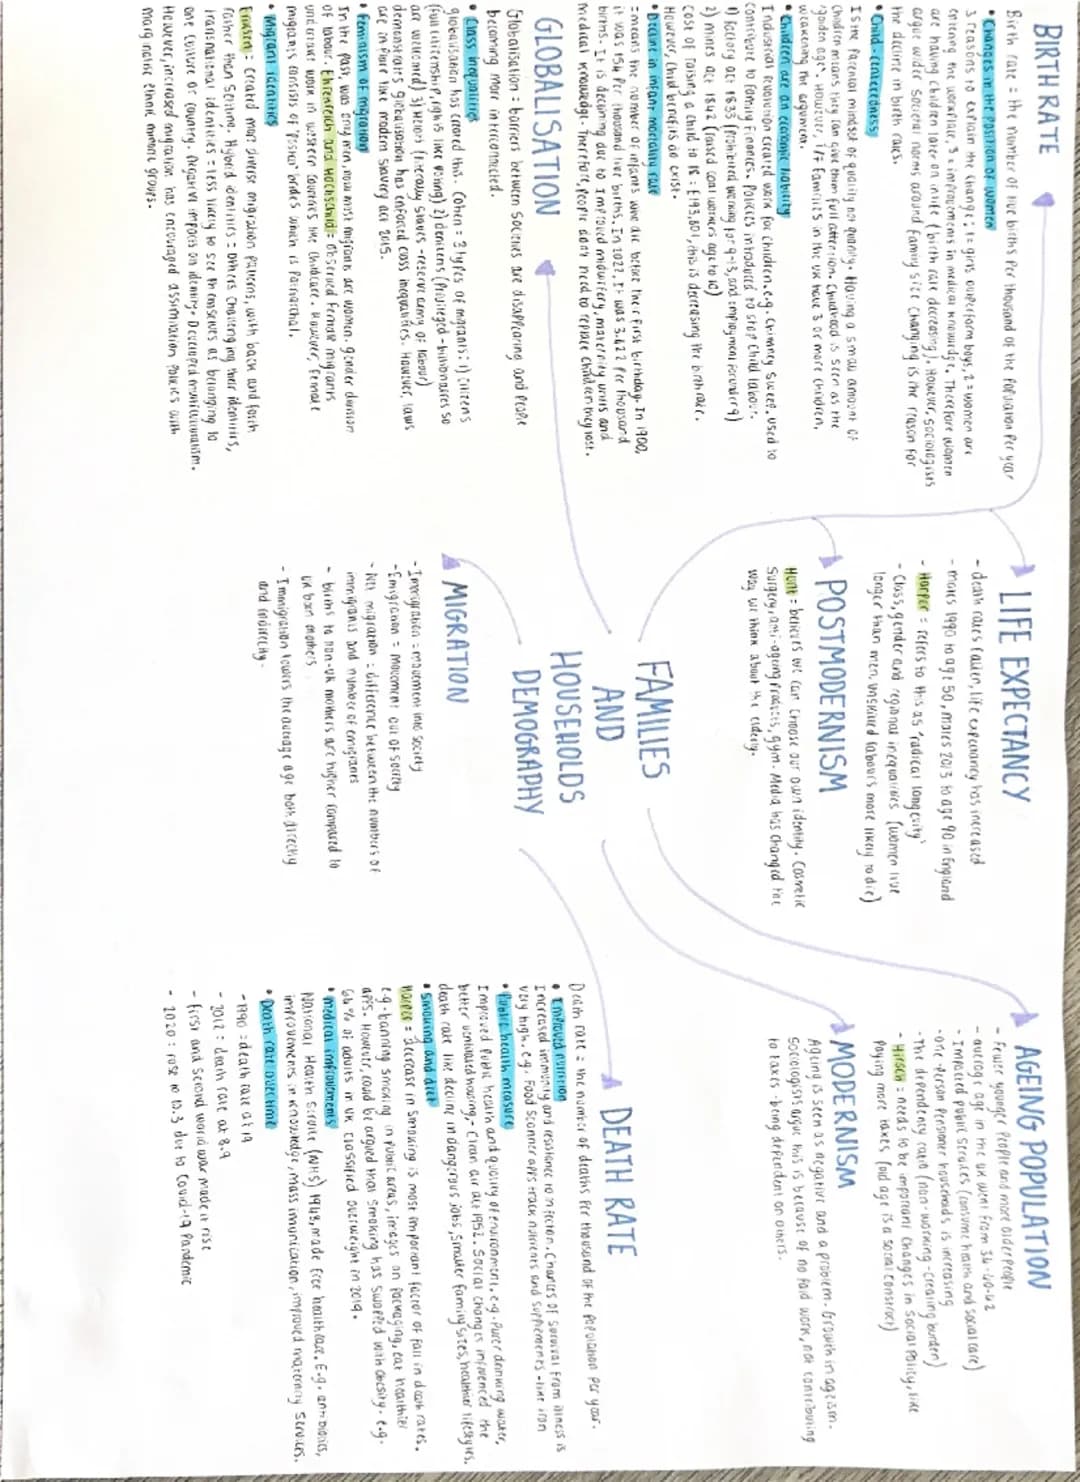 BIRTH RATE
Birth rate = the number of live births per thousand of the population per year
• Changes in the position of women
3 reasons to explain the change: 1= girls outperform boys, 2= women are
entering the workplace, 3= improvements in medical knowledge. Therefore women
are having children later on in life (birth rate decreasing). However, sociologists
argue wider societal norms around family size changing is the reason for
the decline in birth rates.
• Child-centeredness
Is the parental mindset of quality not quantity. Having a small amount of
children means they can give them full attention. Childhood is seen as the
'golden age'. However, 1/7 families in the UK have 3 or more children,
weakening the argument.
• Children are an economic liability
Industrial revolution created work for children. e.g. Chimney sweep. used to
contribute to family finances. Policies introduced to stop child labour.
1) factory act 1833 (prohibited working for 9-13, and employment for under 9)
2) mines act 1842 (raised coal workers age to 10)
cost of raising a child to 18 = £193,801, this is decreasing the birth rate.
However, child benefits do exist.
• Decline in infant mortality rate
= means the number of infants who die before their first birthday. In 1900,
it was 154 per thousand live births. In 2022, it was 3.622 per thousand
births. It is declining due to improved midwifery, maternity units and
medical knowledge. Therefore, people don't need to replace children they lost.
GLOBALISATION
Globalisation = barriers between societies are disappearing and people
becoming more interconnected.
• Class inequalities
globalisation has created this. Cohen = 3 types of migrants: 1) citizens
(full citizenship, rights like voting) 2) denizens (privileged-billionaires so
are welcomed) 3) helots (literally slaves - reserve army of labour)
demonstrates globalisation has enforced class inequalities. However, laws
are in place like modern slavery act 2015.
• Feminism of migration
In the past, was only men, now most migrants are women. gender division
of labour. Ehrenreich and Hochschild = observed female migrants
undertake work in western countries like childcare. However, female
migrants consists of 'postal' brides which is patriarchal.
• Migrant identities
Eriksen = created more diverse migration patterns, with back and forth
rather than settling. Hybrid identities = others challenging their identities,
transnational identities = less likely to see themselves as belonging to
one culture or country. Negative impacts on identity. Developed multiculturalism.
However, increased migration has encouraged assimilation policies with
marginalise ethnic minority groups.
LIFE EXPECTANCY
- death rates fallen, life expectancy has increased
- males 1990 to age 50, males 2013 to age 90 in England
- Harper = refers to this as 'radical longevity'
- Class, gender and regional inequalities (women live
longer than men, unskilled labours more likely to die)
POSTMODERNISM
Hunt = believes we can choose our own identity. Cosmetic
surgery, anti-ageing products, gym. Media has changed the
way we think about the elderly.
FAMILIES
AND
HOUSEHOLDS
DEMOGRAPHY
MIGRATION
- Immigration = movement into society
- Emigration = movement out of society
- Net migration = difference between the numbers of
immigrants and number of emigrants
- births to non-UK mothers are higher compared to
UK born mothers
- Immigration lowers the average age both directly
and indirectly.
AGEING POPULATION
- Fewer younger people and more older people
- average age in the UK went from 34-40-42
- Impacted public services (consume health and social care)
- one-person pensioner households is increasing
- The dependency ratio (non-working - creating burden)
- Hirsch = needs to be important changes in social policy, like
paying more taxes (old age is a social construct)
MODERNISM
Ageing is seen as negative and a problem. Growth in ageism.
Sociologists argue this is because of no paid work, not contributing
to taxes - being dependent on others.
DEATH RATE
Death rate = the number of deaths per thousand of the population per year.
• Improved nutrition
Increased immunity and resistance to infection. Chances of survival from illness is
very high. e.g. Food scanner apps track nutrients and supplements - like iron
• Public health measure
Improved public health and quality of environment. e.g. purer drinking water,
better ventilated housing, - Clean air act 1952. Social changes influenced the
death rate like decline in dangerous jobs, smaller family sizes, healthier lifestyles.
• Smoking and diet
Harper = decrease in smoking is most important factor of fall in death rates.
e.g. banning smoking in public areas, images on packaging, eat healthier
apps. However, could be argued that smoking has swapped with obesity. e.g.
64% of adults in UK classified overweight in 2019.
• medical improvements
National Health Service (NHS) 1948, made free healthcare. E.g. antibiotics,
improvements in knowledge, mass imunization, improved maternity services.
• Death rate overtime
- 1990 = death rate at 19
- 2012 = death rate at 8.9
- First and second world war made it rise
- 2020 = rose to 10.3 due to Covid-19 Pandemic